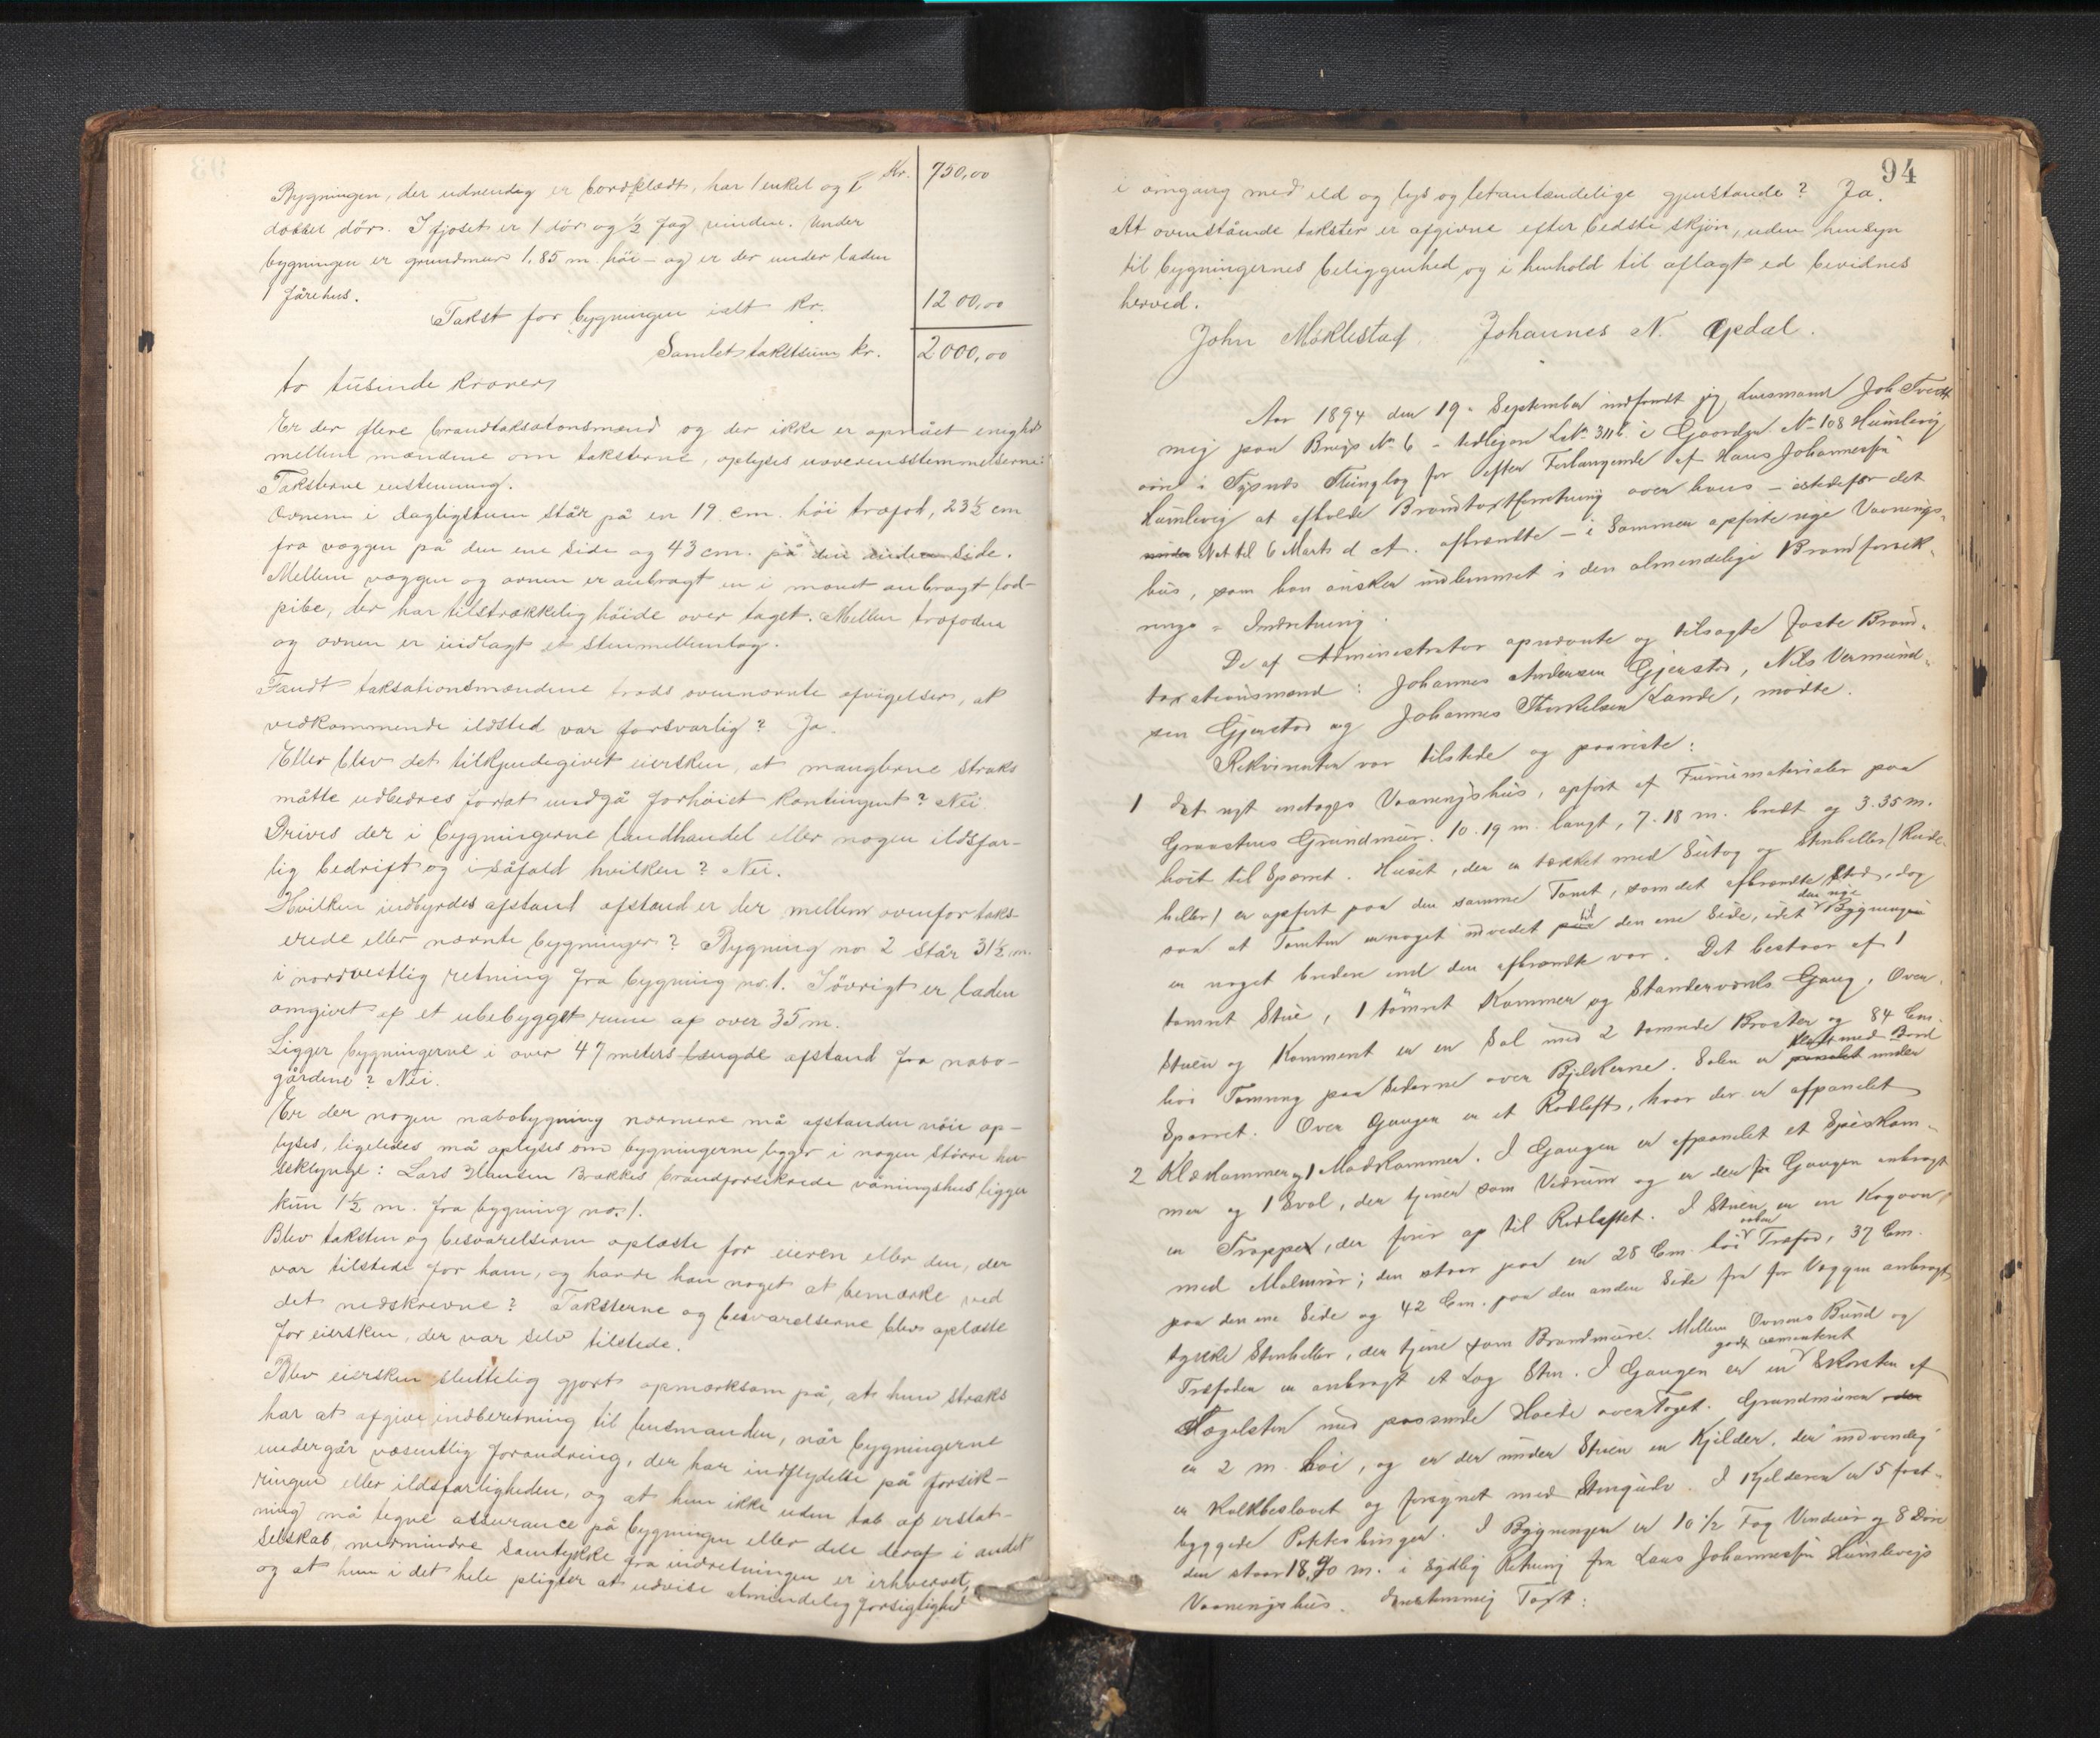 Kr. 750,00
Bygningen, der udvendig er bordklædt, har 1 enkel og 1
dobbel dör. I fjøset er 1 dör og ½ fag vindue. Under
bygningen er grundmur 1,85 m. höi – og er der under laden
1 fårehus.
Takst for bygningen ialt kr. 1200,00
Samlet takstsum kr. 2000,00
to tusinde kroner
Er der flere brandtaksationsmænd og der ikke er opnået enighed
mellem mændene om taksterne, oplyses uoverensstemmelserne:
Taksterne enstemmig.
Ovnen i dagligstuen står på en 19 cm. höi træfod, 23½ cm
fra væggen på den ene side og 43 cm. på den anden side.
Mellem væggen og ovnen er anbragt en i muret anbragt
pibe, der har tilstrækkelig höide over taget. Mellem træfoden
og ovnen er indlagt et stenmellemlag.
Fandt taksationsmændene trods ovennævnte afvigelser, at
vedkommende ildsted var forsvarlig? Ja.
Eller blev det tilkjendegivet eiersken, at manglerne straks
måtte udbedres for at undgå forhöiet kontingent? Nei.
Drives der i bygningerne landhandel eller nogen ildsfar-
lig bedrift og i såfald hvilken? Nei.
Hvilken indbyrdes afstand afstand er der mellem ovenfor taks-
erede eller nævnte bygninger? Bygning no. 2 står 31½ m.
i nordvestlig retning fra bygning no. 1. Iövrigt er laden
omgivet af et ubebygget rum af over 35 m.
Ligger bygningerne i over 47 meters længde afstand fra nabo-
gårdene? Nei.
Er der nogen nabobygning nærmere må afstanden nöie op-
lyses, ligeledes må oplyses om bygningerne ligger i nogen större hu-
seklynge: Lars Hansen Brækkes brandforsikrede våningshus ligger
kun 1½ m. fra bygning no. 1.
Blev taksten og besvarelserne oplæste for eieren eller den, der
var tilstede for ham, og havde han noget at bemærke ved
det nedskrevne? Taksterne og besvarelserne blev oplæste
for eiersken, der var selv tilstede.
Blev eiersken sluttelig gjort opmærksom på, at hun straks
har at afgive indberetning til lensmanden, når bygningerne
undergår væsentlig forandring, der har indflydelse på forsik-
ringen eller ildsfarligheden, og at hun ikke uden tab af erstat-
ning må tegne assurance på bygningen eller dele deraf i andet
selskab, medmindre samtykke fra indretningen er erhvervet,
og at hun i det hele pligter at udvise almindelig forsigtighed
94
i omgang med ild og lys og letantændelige gjenstande? Ja.
At ovenstående takster er afgivne efter bedste skjön, uden hensyn
til bygningernes beliggenhed og i henhold til aflagt ed bevidnes
herved.
John Møklestad. Johannes N. Opdal.
Aar 1894 den 19. September indfandt jeg Lensmand Joh Tvedt
mig paa Brugs No 6 - tidligere L No 311 b. i Gaarden No 108 Humlevig
i Tysnes Thinglag for efter Forlangende af Hans Johannessen
Humlevig at afholde Brandtaxtforretning over hans – istedetfor det
under Nat til 6 Marts d A. afbrændte – i Sommer opførte nye Vaanings-
hus, som han ønsker indlemmet i den almendelige Brandforsik-
rings - Indretning.
De af Administrator opnævnte og tilsagte faste Brand-
taxationsmænd: Johannes Andersen Gjerstad, Nils Vermund-
sen Gjerstad og Johannes Thorkelsen Lande, mødte.
Rekvirenten var tilstede og paaviste:
1 Et nyt enetages Vaaningshus, opført af Furumaterialer paa
Graastens Grundmur. 10.19 m. langt, 7.18 m. bredt og 3.35 m.
høit til Sparret. Huset, der er tækket med Sutag og Stenheller (Rude-
heller) er opført paa den samme Tomt, som det afbrændte stod, dog
saa at Tomten er noget udvidet paa til den ene Side, idet den nye Bygningen
er noget bredere end den afbrændte var. Det bestaar af 1
tømret Stue, 1 tømret Kammer og Standerværks Gang. Over
Stuen og Kammeret er en Sal med 2 tømrede Brøster og 84 Cm.
høi Tømring paa Siderne over Bjelkerne. Salen er panelet klædt med Bord under
Sparret. Over Gangen er et Rødloft, hvor der er afpanelet
2 Klækammer og 1 Madkammer. I Gangen er afpanelet et Spiskam-
mer og 1 Sval, der tjener som Vedrum og er der fra Gangen anbragt
en Trappe, der fører op til Rødloftet. I Stuen er en Kogovn
med Malmrør; den staar paa en 28 Cm. høi Træfod, 37 Cm.
paa den ene Side og 42 Cm. paa den anden Side fra for Væggen anbragt
tykke Stenheller, der tjene som Brandmure. Mellem Ovnens Bund og
Træfoden er anbragt et Lag Sten. I Gangen er en godt cementeret Skorsten af
Tegelsten med passende Høide over Taget. Grundmuren der
er 2 m. høi, og er der under Stuen en Kjelder, der indvendig
er Kalkbeslaaet og forsynet med Stengulv. I Kjelderen er 5 fast-
byggede Potetesbinger. I Bygningen er 10 ½ Fag Vinduer og 8 Døre
den staar 18,90 m. i sydlig Retning fra Lars Johannessen Humlevigs
Vaaningshus. Enstemmig Taxt: